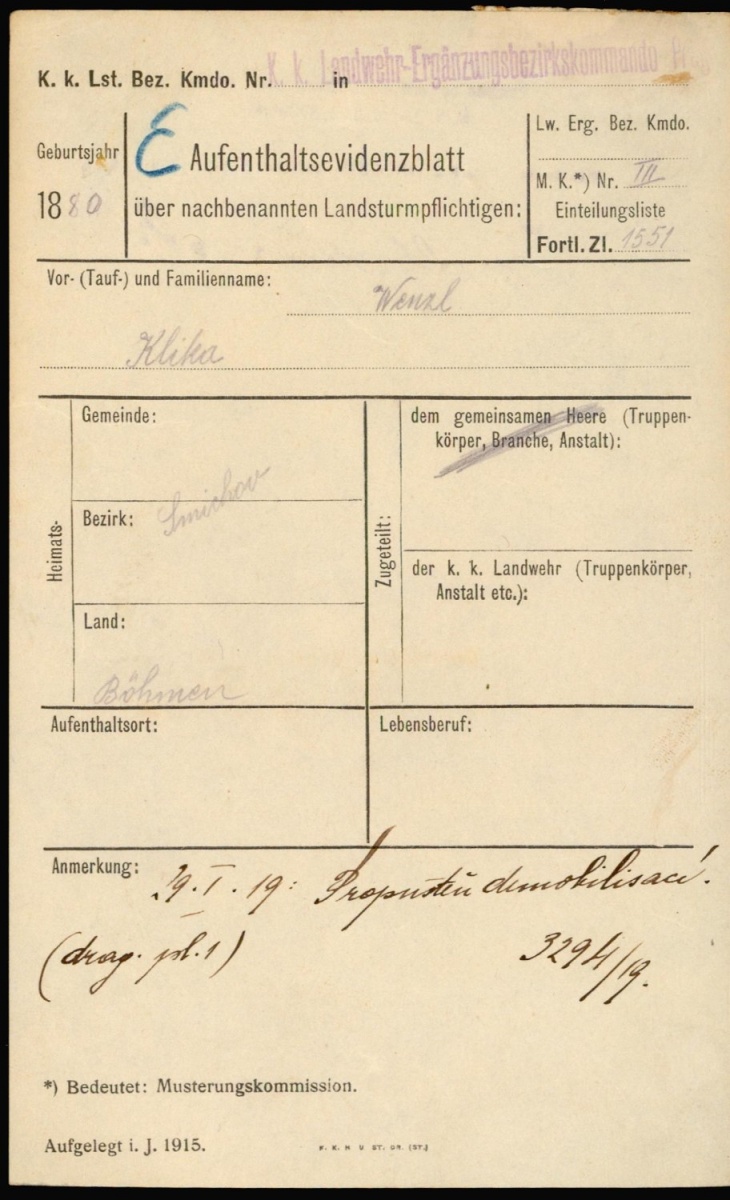 K. k. Lst. Bez. Kmdo. Nr. in
K. k. Landwehr-Ergänzungsbezirkskommando
Geburtsjahr
1880
E Aufenthaltsevidenzblatt
über nachbenannten Landsturmpflichtigen:
Lw. Erg. Bez. Kmdo.
M. K.*) Nr. III
Einteilungsliste
Fortl. Zl. 1551
Vor- (Tauf-) und Familienname:
Wenzl
Klika
Heimats-
Gemeinde:
Bezirk: Smichov
Land:
Böhmen
Zugeteilt:
dem gemeinsamen Heere (Truppen-
körper, Branche, Anstalt):
der k. k. Landwehr (Truppenkörper,
Anstalt etc.):
Aufenthaltsort:
Lebensberuf:
Anmerkung: 29. I. 19: Propuštěn demobilisací.
(drag. pl. 1) 3294/19.
*) Bedeutet: Musterungskommission.
Aufgelegt i. J. 1915.